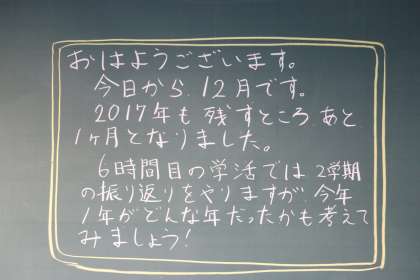 おはようございます。
今日から、12月です。
2017年も残すところ、あと
1ヶ月となりました。
6時間目の学活では、2学期
の振り返りをやりますが、今年
1年がどんな年だったかも考えて
みましょう!